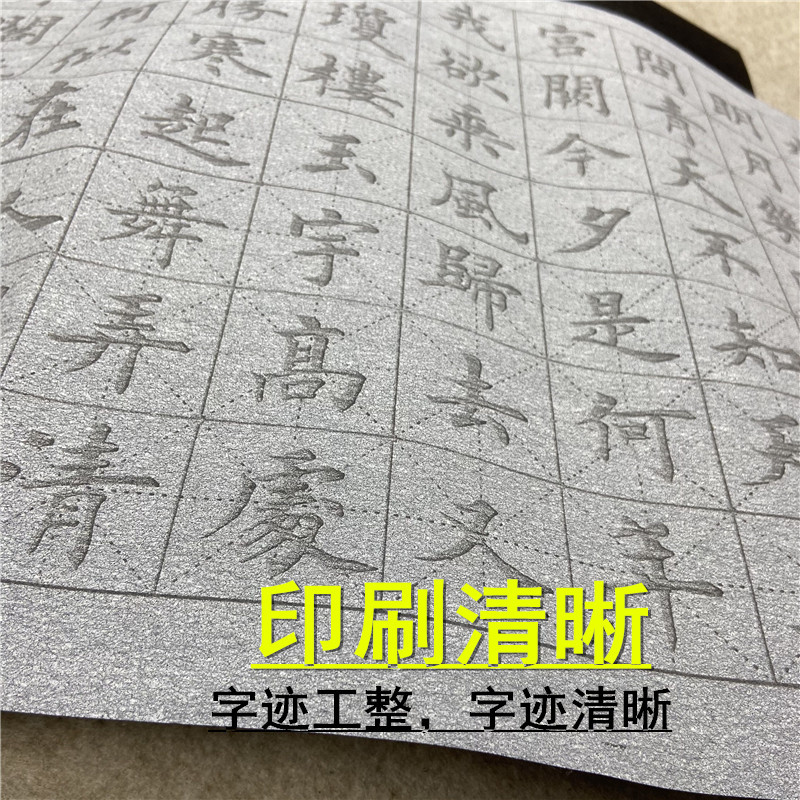 明月幾
問青天不知
宮闕今夕是何年
我欲乘風歸去又
瓊樓玉宇高處
勝寒起舞弄清
何似在人
印刷清晰
字迹工整，字迹清晰